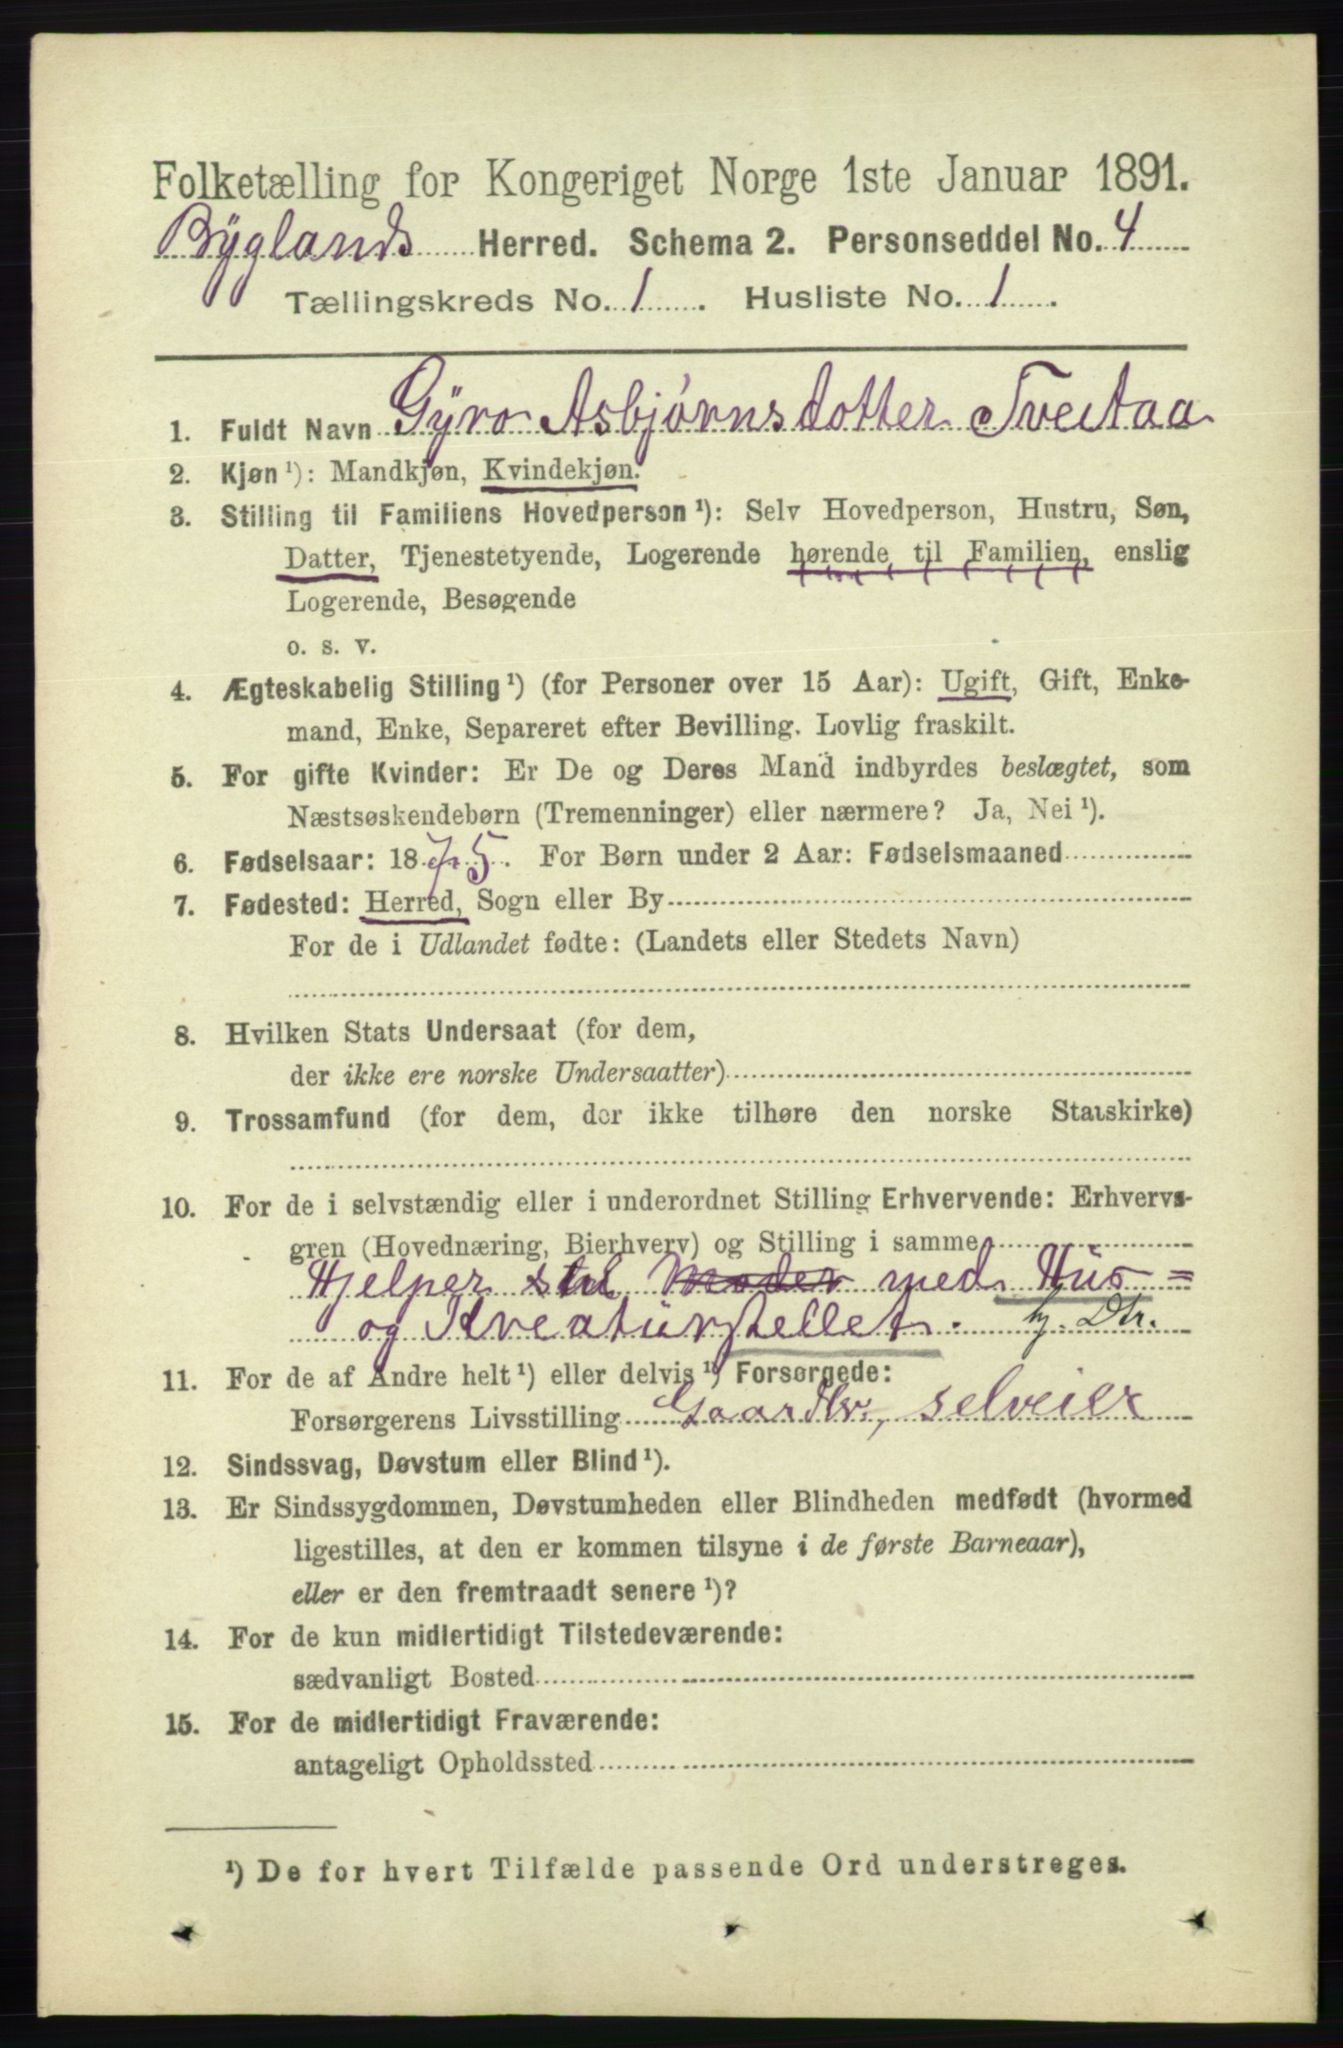 Folketælling for Kongeriget Norge 1ste Januar 1891.
Byglands Herred. Schema 2. Personseddel No. 4
Tællingskreds No. 1. Husliste No. 1.
1. Fuldt Navn Gyro Asbjørnsdotter Tveitaa
2. Kjøn ¹): Mandkjøn, Kvindekjøn.
3. Stilling til Familiens Hovedperson ¹): Selv Hovedperson, Hustru, Søn,
Datter, Tjenestetyende, Logerende hørende til Familien, enslig
Logerende, Besøgende
o. s. v.
4. Ægteskabelig Stilling ¹) (for Personer over 15 Aar): Ugift, Gift, Enke-
mand, Enke, Separeret efter Bevilling. Lovlig fraskilt.
5. For gifte Kvinder: Er De og Deres Mand indbyrdes beslægtet, som
Næstsøskendebørn (Tremenninger) eller nærmere? Ja, Nei ¹).
6. Fødselsaar: 1875. For Børn under 2 Aar: Fødselsmaaned
7. Fødested: Herred, Sogn eller By
For de i Udlandet fødte: (Landets eller Stedets Navn)
8. Hvilken Stats Undersaat (for dem,
der ikke ere norske Undersaatter)
9. Trossamfund (for dem, der ikke tilhøre den norske Statskirke)
10. For de i selvstændig eller i underordnet Stilling Erhvervende: Erhvervs-
gren (Hovednæring, Bierhverv) og Stilling i samme
Hjelper Moder med Hus=
og Kreaturstellet. hj. Dtr.
11. For de af Andre helt ¹) eller delvis ¹) Forsørgede:
Forsørgerens Livsstilling Gaardbr., selveier
12. Sindssvag, Døvstum eller Blind ¹).
13. Er Sindssygdommen, Døvstumheden eller Blindheden medfødt (hvormed
ligestilles, at den er kommen tilsyne i de første Barneaar),
eller er den fremtraadt senere ¹)?
14. For de kun midlertidigt Tilstedeværende:
sædvanligt Bosted
15. For de midlertidigt Fraværende:
antageligt Opholdssted
¹) De for hvert Tilfælde passende Ord understreges.